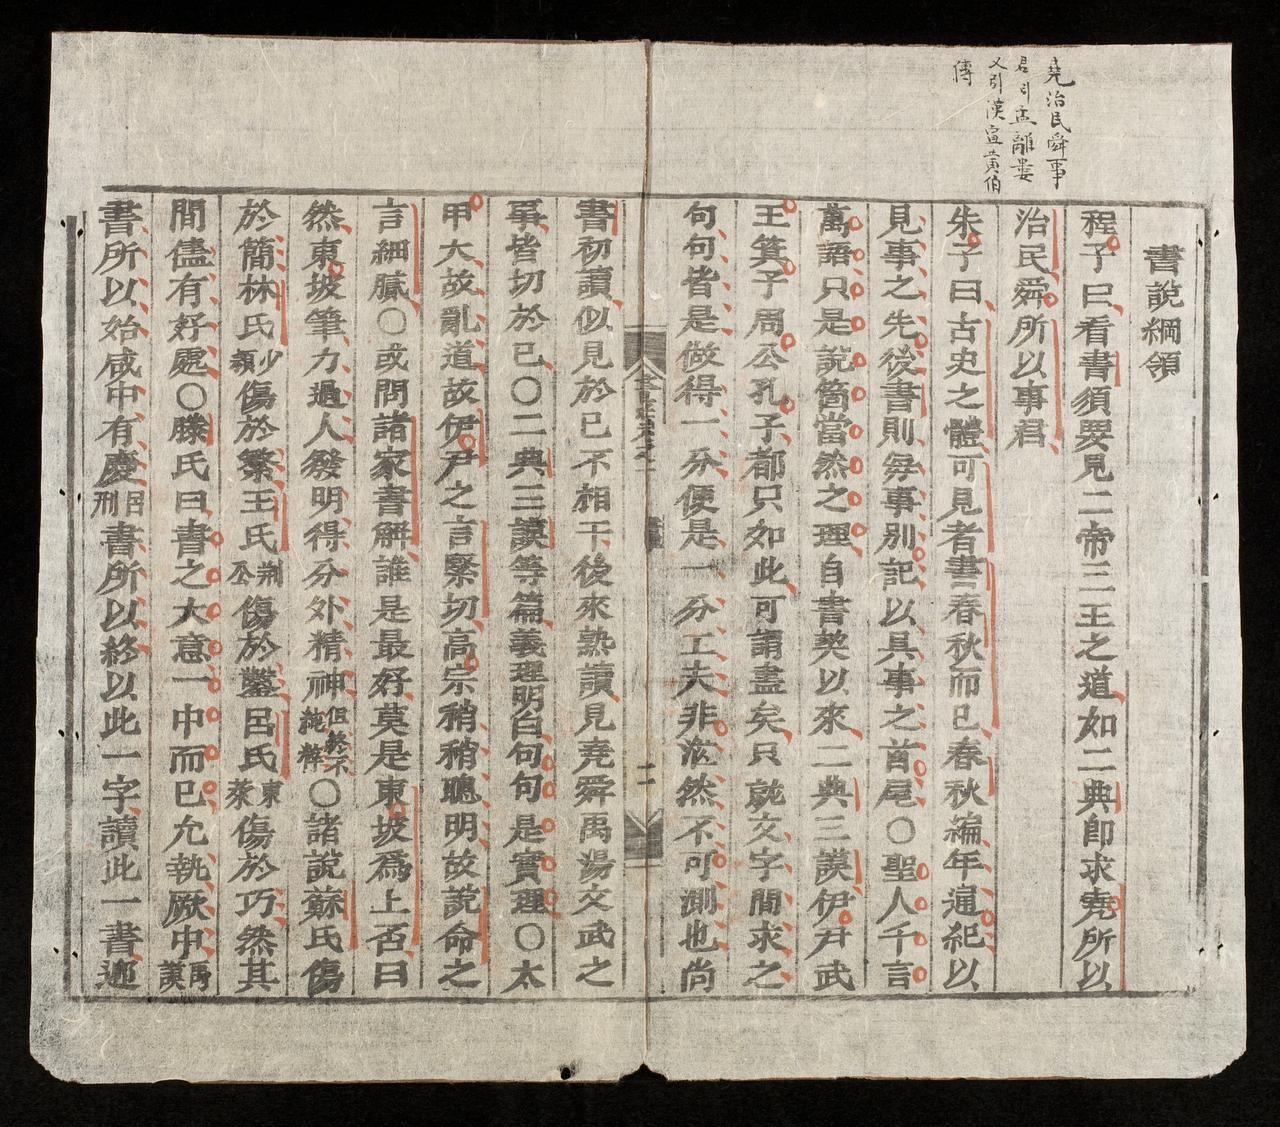 堯治民舜事
君引孟離婁
又引漢宣黄伯
傳
書說綱領
程子曰看書須要見二帝三王之道如二典即求堯所以
治民舜所以事君
朱子曰古史之體可見者書春秋而已春秋編年通紀以
見事之先後書則每事別記以具事之首尾○聖人千言
萬語只是說箇當然之理自書契以來二典三謨伊尹武
王箕子周公孔子都只如此可謂盡矣只就文字間求之
句句皆是做得一分便是一分工夫非茫然不可測也尚
書初讀似見於己不相干後來熟讀見堯舜禹湯文武之
事皆切於己○二典三謨等篇義理明白句句是實理○太
甲大故亂道故伊尹之言緊切高宗稍稍聰明故說命之
言細膩○或問諸家書解誰是最好莫是東坡爲上否曰
然東坡筆力過人發明得分外精神但終不純粹○諸說蘇氏傷
於簡林氏少穎傷於繁王氏荆公傷於鑿呂氏東萊傷於巧然其
間儘有好處○滕氏曰書之大意一中而已允執厥中禹謨
書所以始咸中有慶呂刑書所以終以此一字讀此一書迎
二